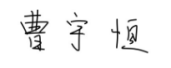 曹宇恒